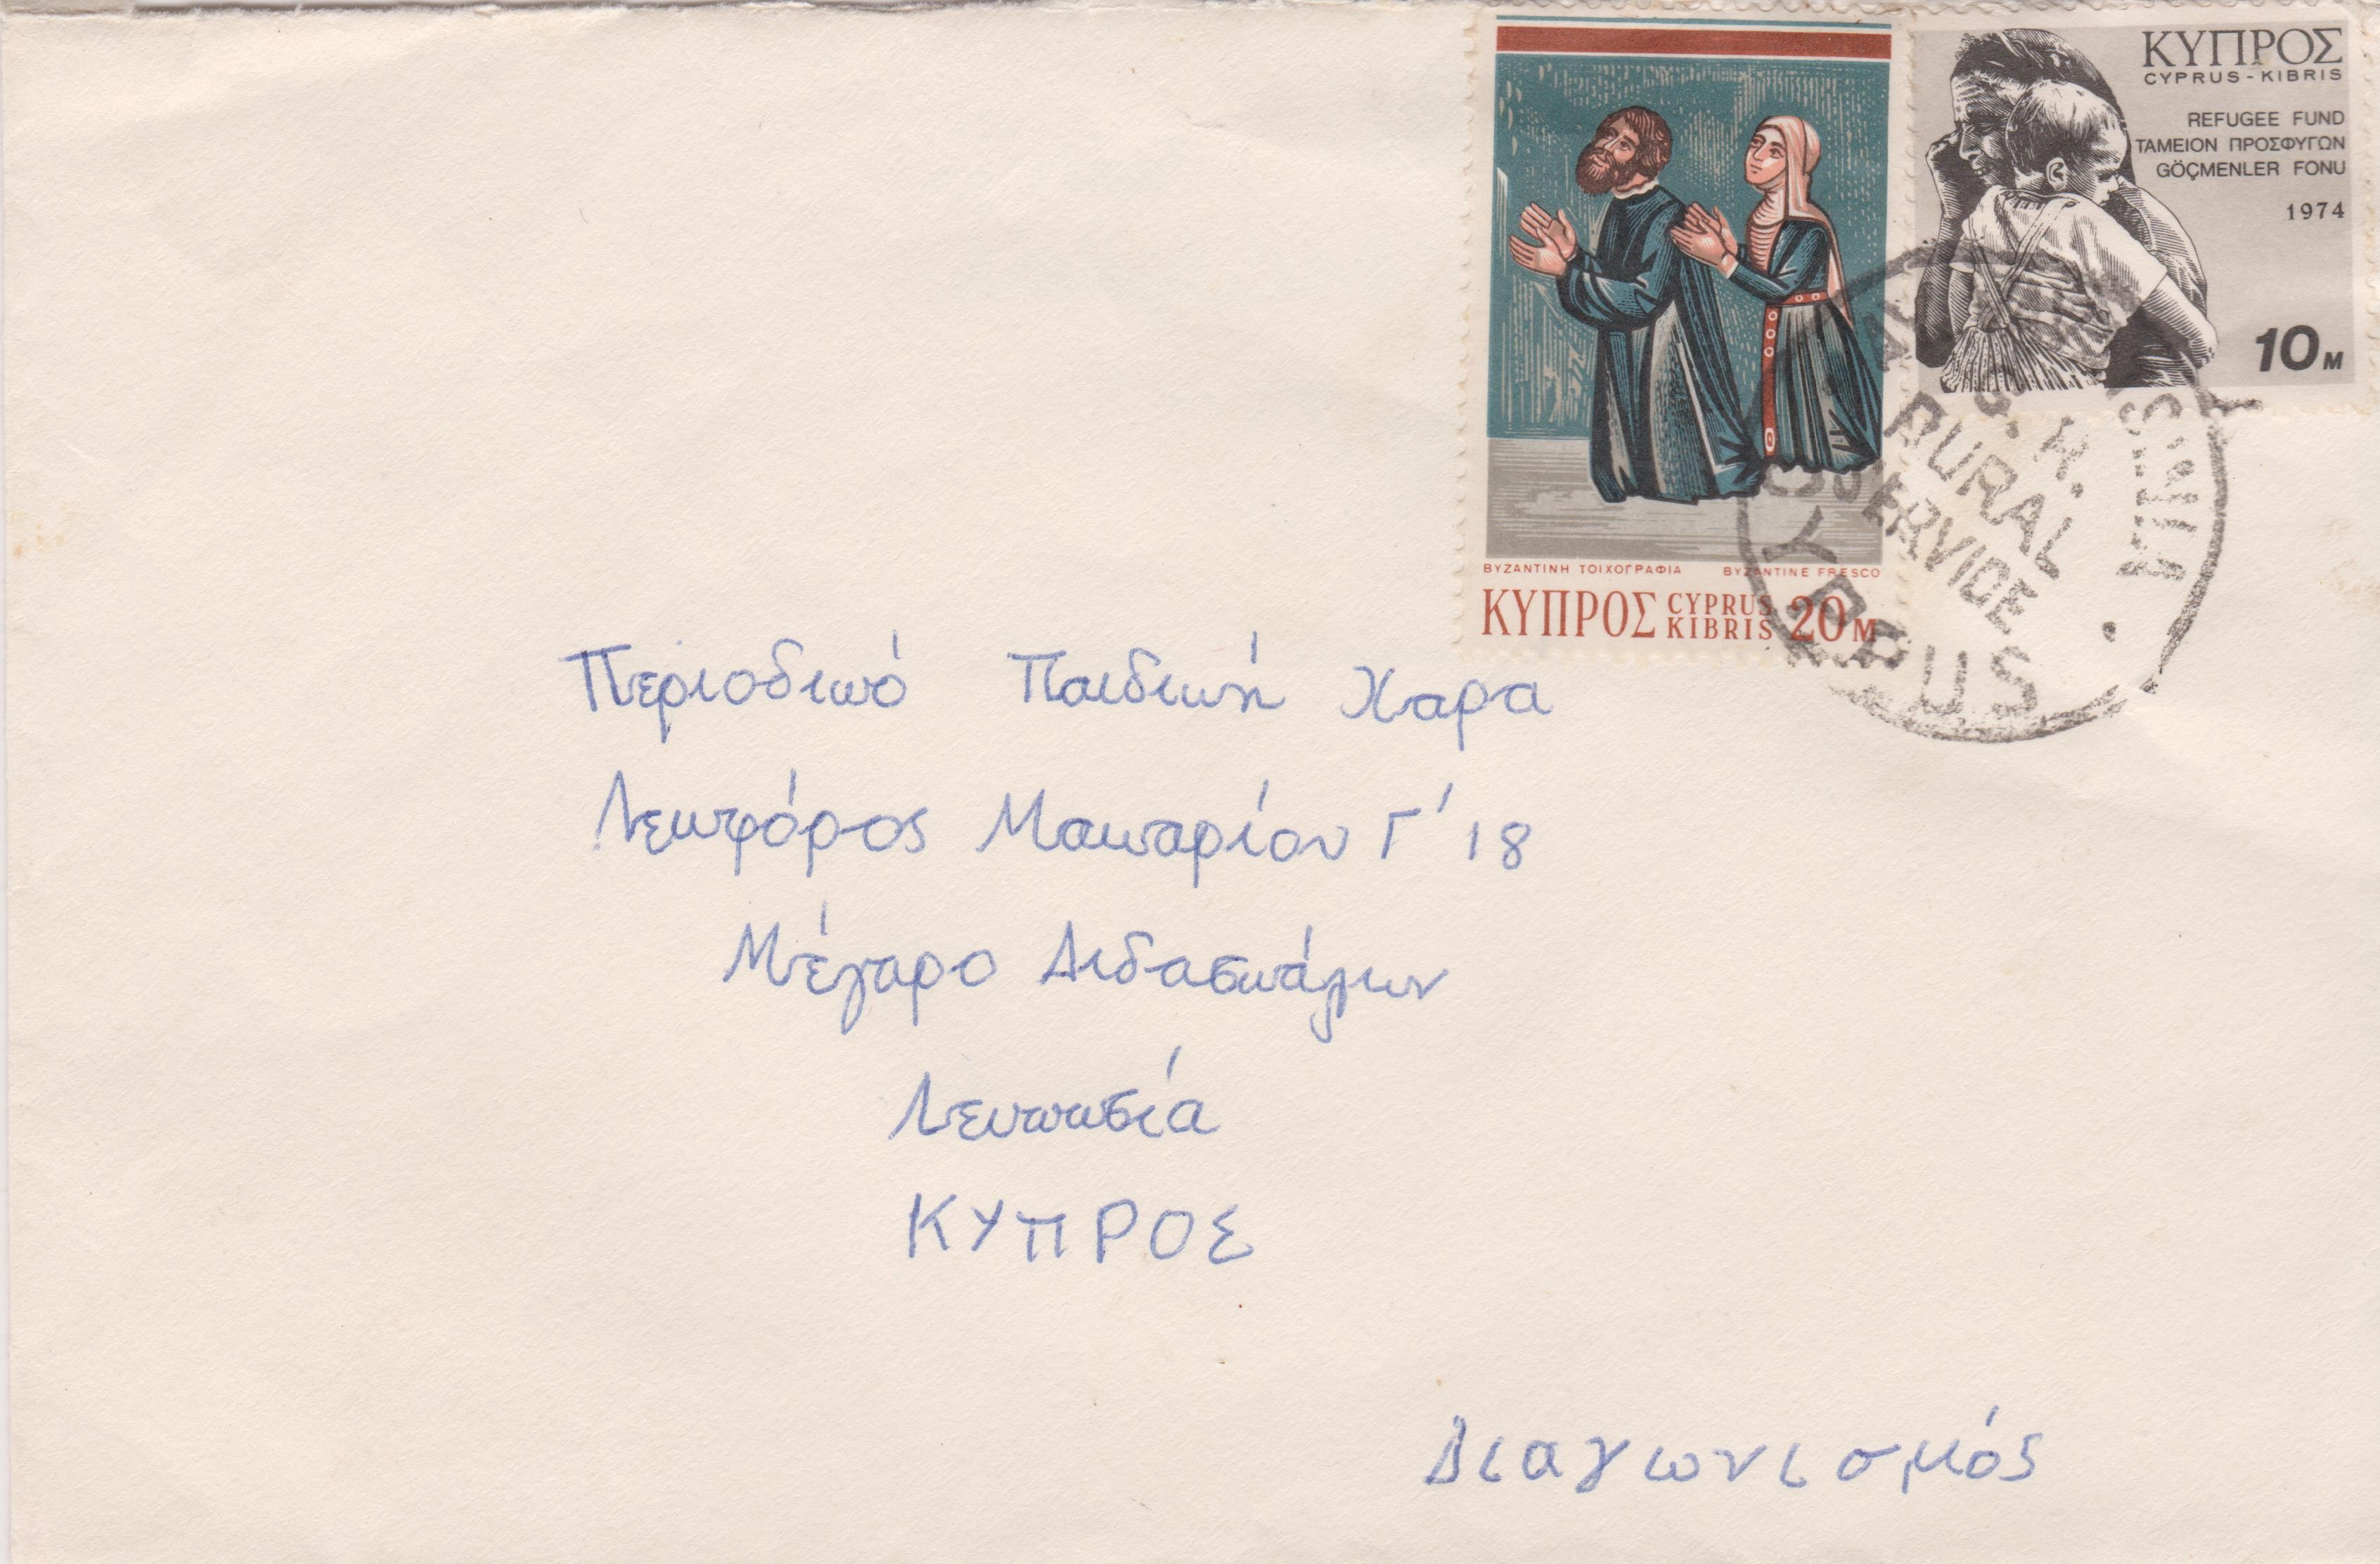 ΚΥΠΡΟΣ
CYPRUS - KIBRIS
REFUGEE FUND
ΤΑΜΕΙΟΝ ΠΡΟΣΦΥΓΩΝ
GÖÇMENLER FONU
1974
10 M
ΒΥΖΑΝΤΙΝΗ ΤΟΙΧΟΓΡΑΦΙΑ BYZANTINE FRESCO
ΚΥΠΡΟΣ CYPRUS KIBRIS 20 M
RURAL
SERVICE
CYPRUS
Περιοδικό Παιδική Χαρα
Λεωφόρος Μακαρίου Γ' 18
Μέγαρο Διδασκάλων
Λευκωσία
ΚΥΠΡΟΣ
Διαγωνισμός